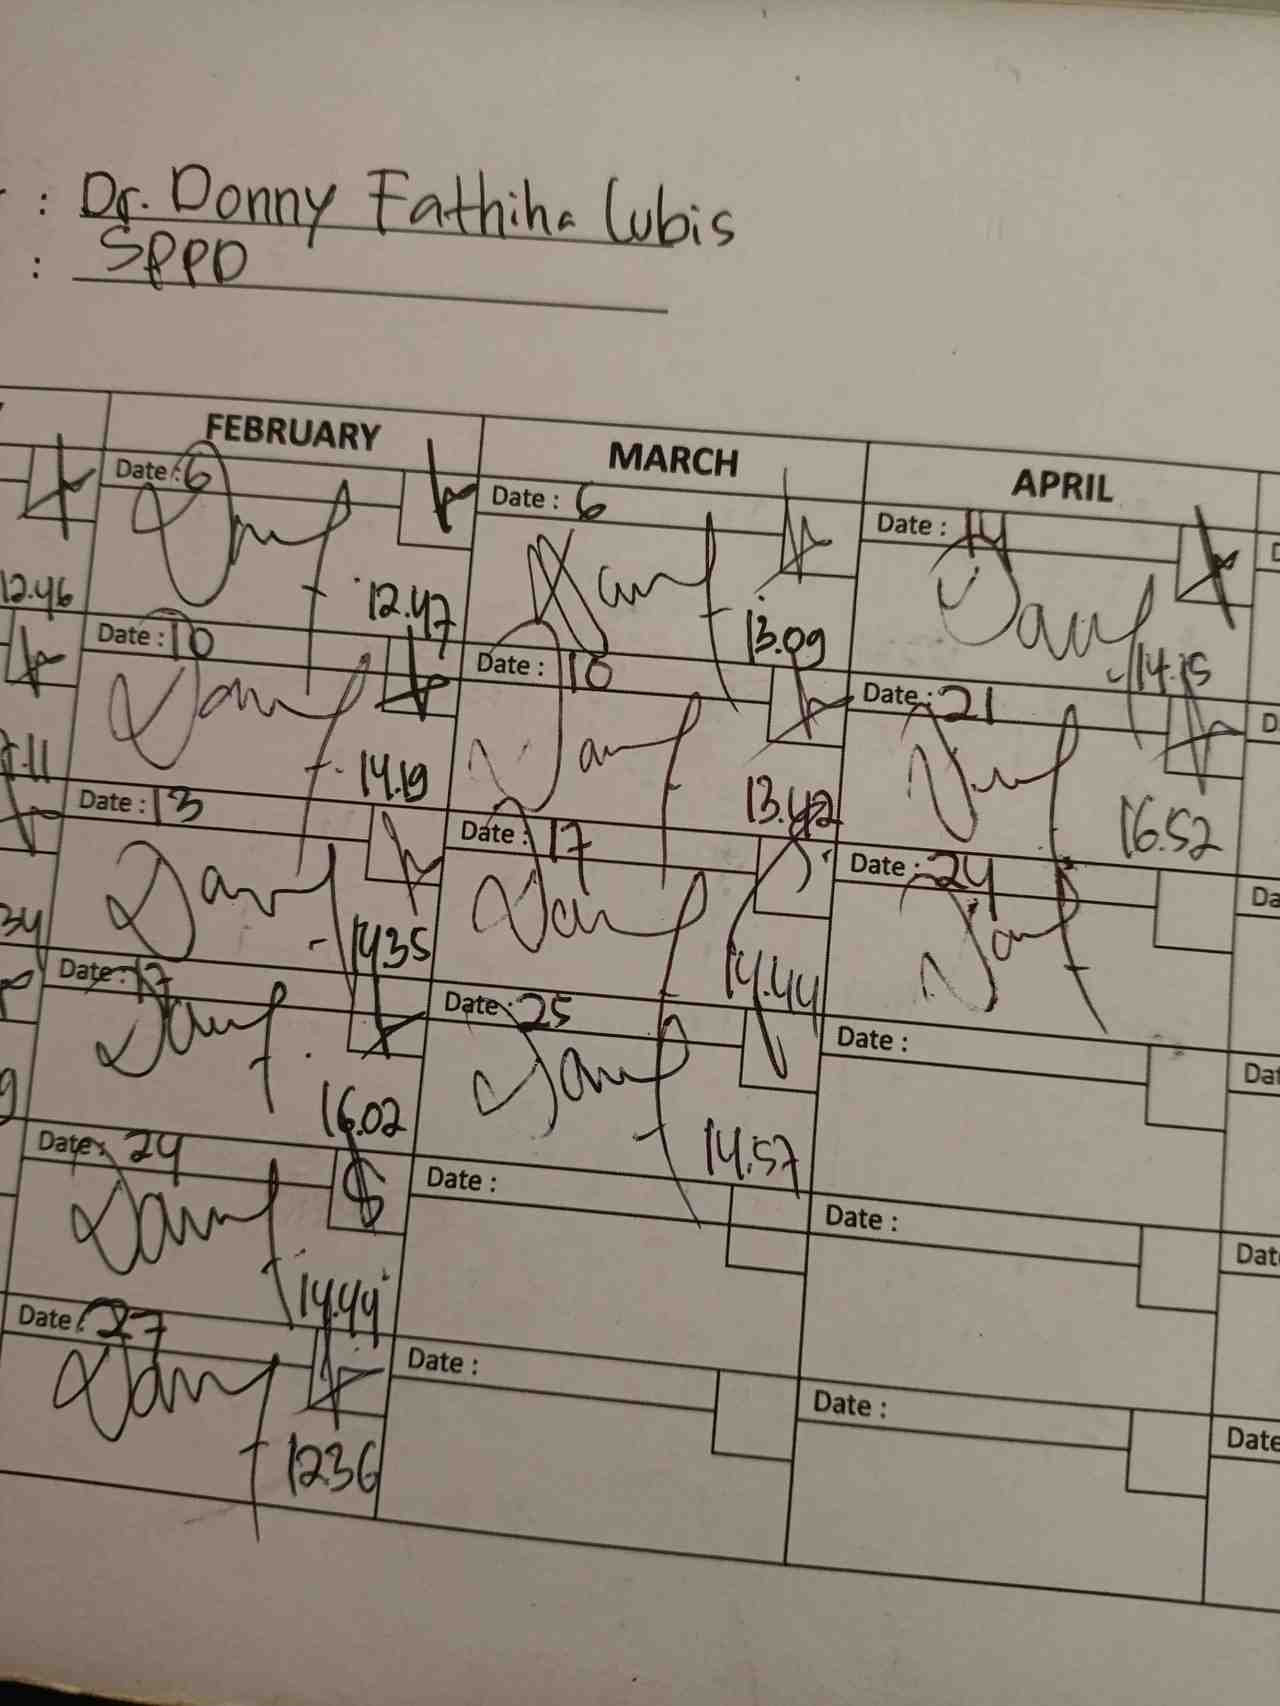 : Dr. Donny Fathiha Lubis
: SPPD
FEBRUARY MARCH APRIL
Date : 6 Date : 6 Date : 14
12.46 12.47 13.09 14.15
Date : 10 Date : 10 Date : 21
14.19 13.42 16.52
Date : 13 Date : 17 Date : 24
14.35 14.44
Date : 17 Date : 25 Date :
16.02 14.57
Date : 24 Date : Date :
14.44
Date : 27 Date : Date :
1236